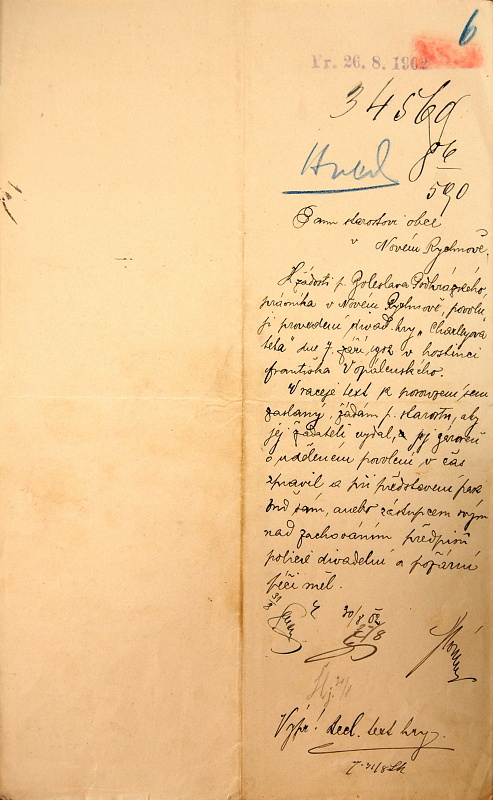 6
Pr. 26. 8. 1902
34569
590
Panu starostovi obce
v Novém Rychnově.
K žádosti p. Boleslava Podhrázského,
právníka v Novém Rychnově, povolu-
ji provedení divad. hry „Charleyova
teta" dne 7. září 1902 v hostinci
Františka Vopálenského.
Vraceje text k posouzení sem
zaslaný, žádám p. starostu, aby
jej žadateli vydal, a jej zároveň
o uděleném povolení v čas
zpravil a při představení pak
buď sám, anebo zástupcem svým
nad zachováním předpisů
policie divadelní a požární
péči měl.
31/8
30/8 02
Výpr! txt hry.